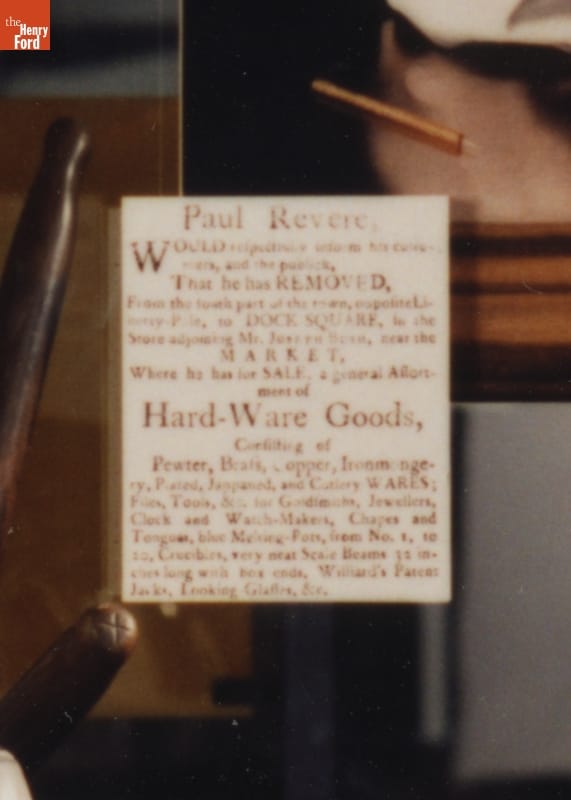 the
Henry
Ford
Paul Revere,
WOULD respectfully inform his custo-
mers, and the publick,
That he has REMOVED,
From the south part of the town, opposite Li-
berty-Pole, to DOCK SQUARE, in the
Store adjoining Mr. Joseph Bush, near the
MARKET,
Where he has for SALE, a general Assort-
ment of
Hard-Ware Goods,
Consisting of
Pewter, Brass, Copper, Ironmonge-
ry, Plated, Jappaned, and Cutlery WARES;
Files, Tools, &c. for Goldsmiths, Jewellers,
Clock and Watch-Makers, Chapes and
Tongues, blue Melting-Pots, from No. 1, to
20, Crucibles, very neat Scale Beams 32 in-
ches long with box ends, Williard's Patent
Jacks, Looking-Glasses, &c.